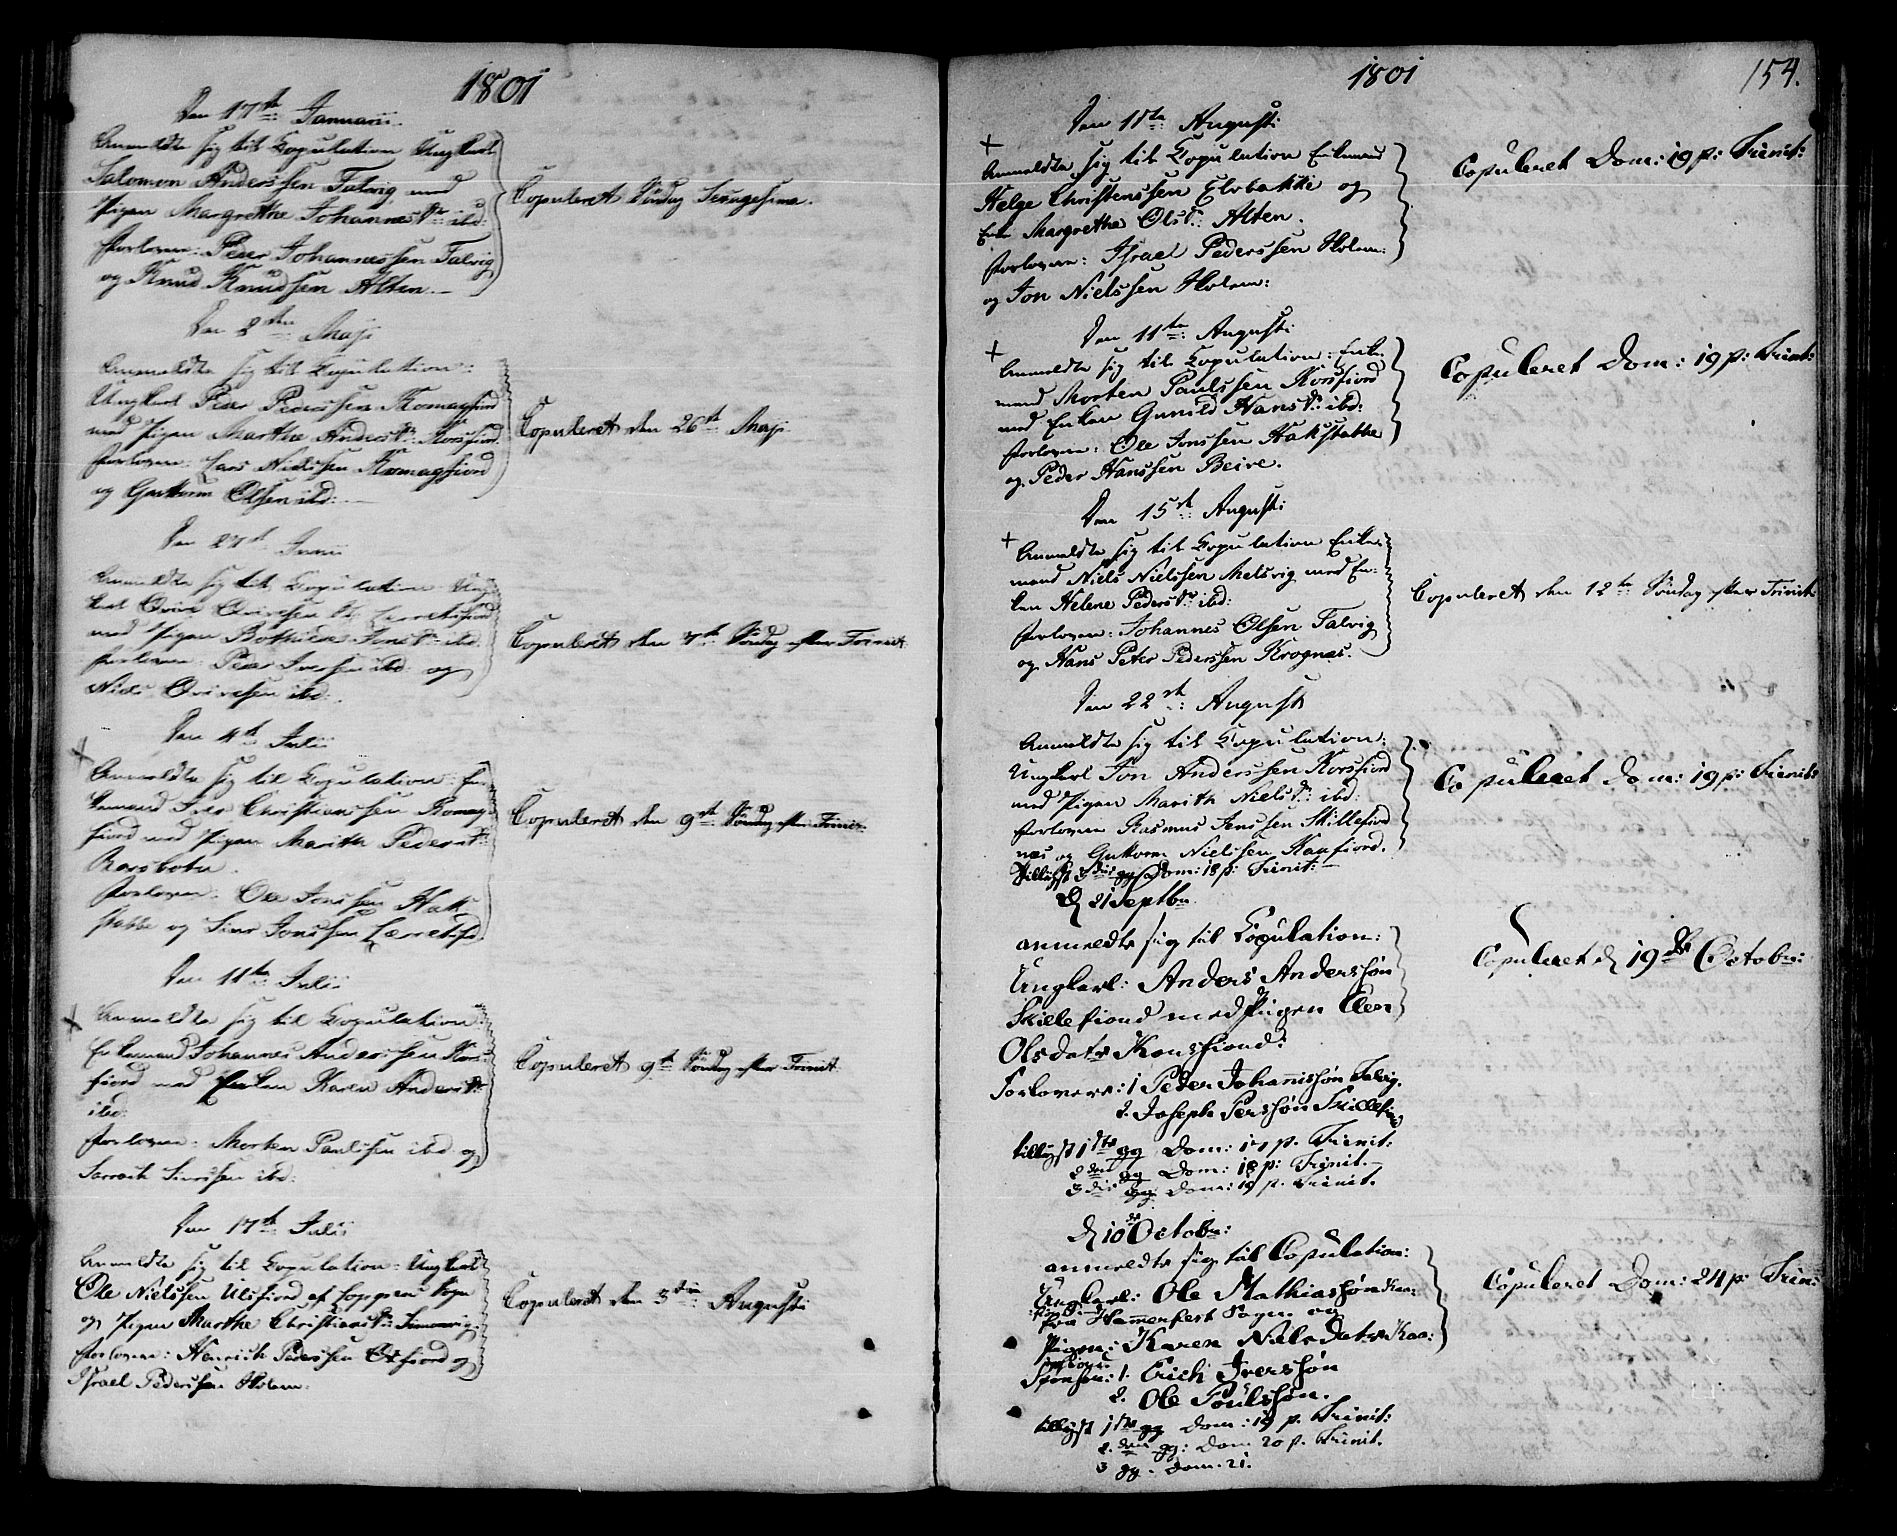 1801
Den 17de Januarii
Anmeldte sig til Copulation Ungkarl
Salomon Anderssen Talvig med
Pigen Margrethe Johannesdr: ibd:
Forlover: Peder Johannessen Talvig
og Knud Knudssen Alten.
Copuleret Søndag Sexagesima.
Den 2den Maji
Anmeldte sig til Copulation:
Ungkarl Peder Pederssen Komagfiord
med Pigen Marthe Andersdr: Korsfiord
Forlover: Lars Nielssen Komagfiord
og Guttorm Olssen ibd:
Copuleret den 26de Maji
Den 27de Junii
Anmeldte sig til Copulation Ung
karl
med Pigen ibd:
Forlover: Peder Iverssen ibd: og
Niels ibd:
Copuleret den 7de Søndag efter Trinit
Den 4de Julii
Anmeldte sig til Copulation: En-
kemand Iver Christianssen Komag
fiord med Pigen Marith Pedersdr:
Rafsbotn.
Forlover: Ole Jonssen Hak
stabbe og Siver Jonssen Lerretsfd:
Copuleret den 9de Søndag efter Trinit.
Den 11te Julii
Anmeldte sig til Copulation:
Enkemand Johannes Anderssen Kors
fiord med Enken Karen Andersdr:
ibd:
Forlover: Morten Paulssen ibd og
ibd:
Copuleret 9de Søndag efter Trinit
Den 17de Julii
Anmeldte sig til Copulation: Ungkarl
Ole Nielssen Ulsfiord af Loppens Sogn
og Pigen Marthe Christiansdr: Simonvig.
Forlover: Henrich Pederssen Oxfiord og
Israel Pederssen Holem:
Copuleret den 5die Augusti
1801
154.
Den 11te Augusti
Anmeldte sig til Copulation Enkemand
Helge Christenssen Elvbakke og
Enke Margrethe Olsdr: Alten.
Forlover: Israel Pederssen Holem:
og Jon Nielssen Holem:
Copuleret Dom: 19 p: Trinit:
Den 11te Augusti
Anmeldte sig til Copulation: Enke-
mand Morten Paulssen Korsfiord
med Enken Gunild Hansdr: ibd:
Forlover: Ole Jonssen Hakstabbe
og Peder Hanssen Beive.
Copuleret Dom: 19 p: Trinit:
Den 15de Augusti
Anmeldte sig til Copulation Enke-
mand Niels Nielssen Melsvig med En-
ken Helene Pedersdr: ibd:
Forlover: Johannes Olssen Talvig
og Hans Peter Pederssen Krognæs.
Copuleret den 12te Søndag efter Trinit
Den 22de Augusti
Anmeldte sig til Copulation:
Ungkarl Jon Anderssen Korsfiord
med Pigen Marith Nielsdr: ibd:
Forlover Rasmus Jenssen Skillefiord
næs og Guttorm Nielssen Kaafiord.
Tillyst 3die gg Dom: 18 p: Trinit:
Copuleret Dom: 19 p: Trinit:
D 21 Septbr.
anmeldte sig til Copulation:
Ungkarl: Anders Anderssøn
Skillefiord med Pigen Elen
Olsdatr Korsfiord:
Forlovere: 1 Peder Johanissøn Talvig.
2. Joseph Perssøn Skillefiord
tillyst 1ste gg Dom: 17 p. Trinit:
2den gg Dom: 18 p: Trinit.
3die gg: Dom: 19 p. Trinit.
Copuleret d 19de Octobr:
D 10de Octobr:
anmeldte sig til Copulation:
Ungkarl: Ole Mathiassøn Kaa:
fra Hammerfest Sogn og
Pigen: Karen Nielsdatr Kaa:
Sponsor: 1. Erich Iverssøn
2. Ole Poulssøn.
tillyst 1ste gg Dom: 19 p. Trinit:
2. den gg: Dom 20 p. Trinit.
3 gg. Dom. 21.
Copuleret Dom: 24 p: Trin: